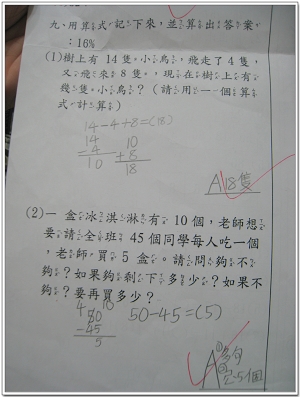 九、用算式記下來，並算出答案
：16%
(1)樹上有14隻小鳥，飛走了4隻，
又飛來8隻。現在樹上有
幾隻小鳥？（請用一個算
式計算）
14-4+8=(18)
14
-4
10
10
+8
18
A 18隻
(2)一盒冰淇淋有10個，老師想
要請全班45個同學每人吃一個
，老師買5盒。請問夠不
夠？如果夠剩下多少？如果不
夠？要再買多少？
4 10
50
-45
5
50-45=(5)
A ①夠
②5個